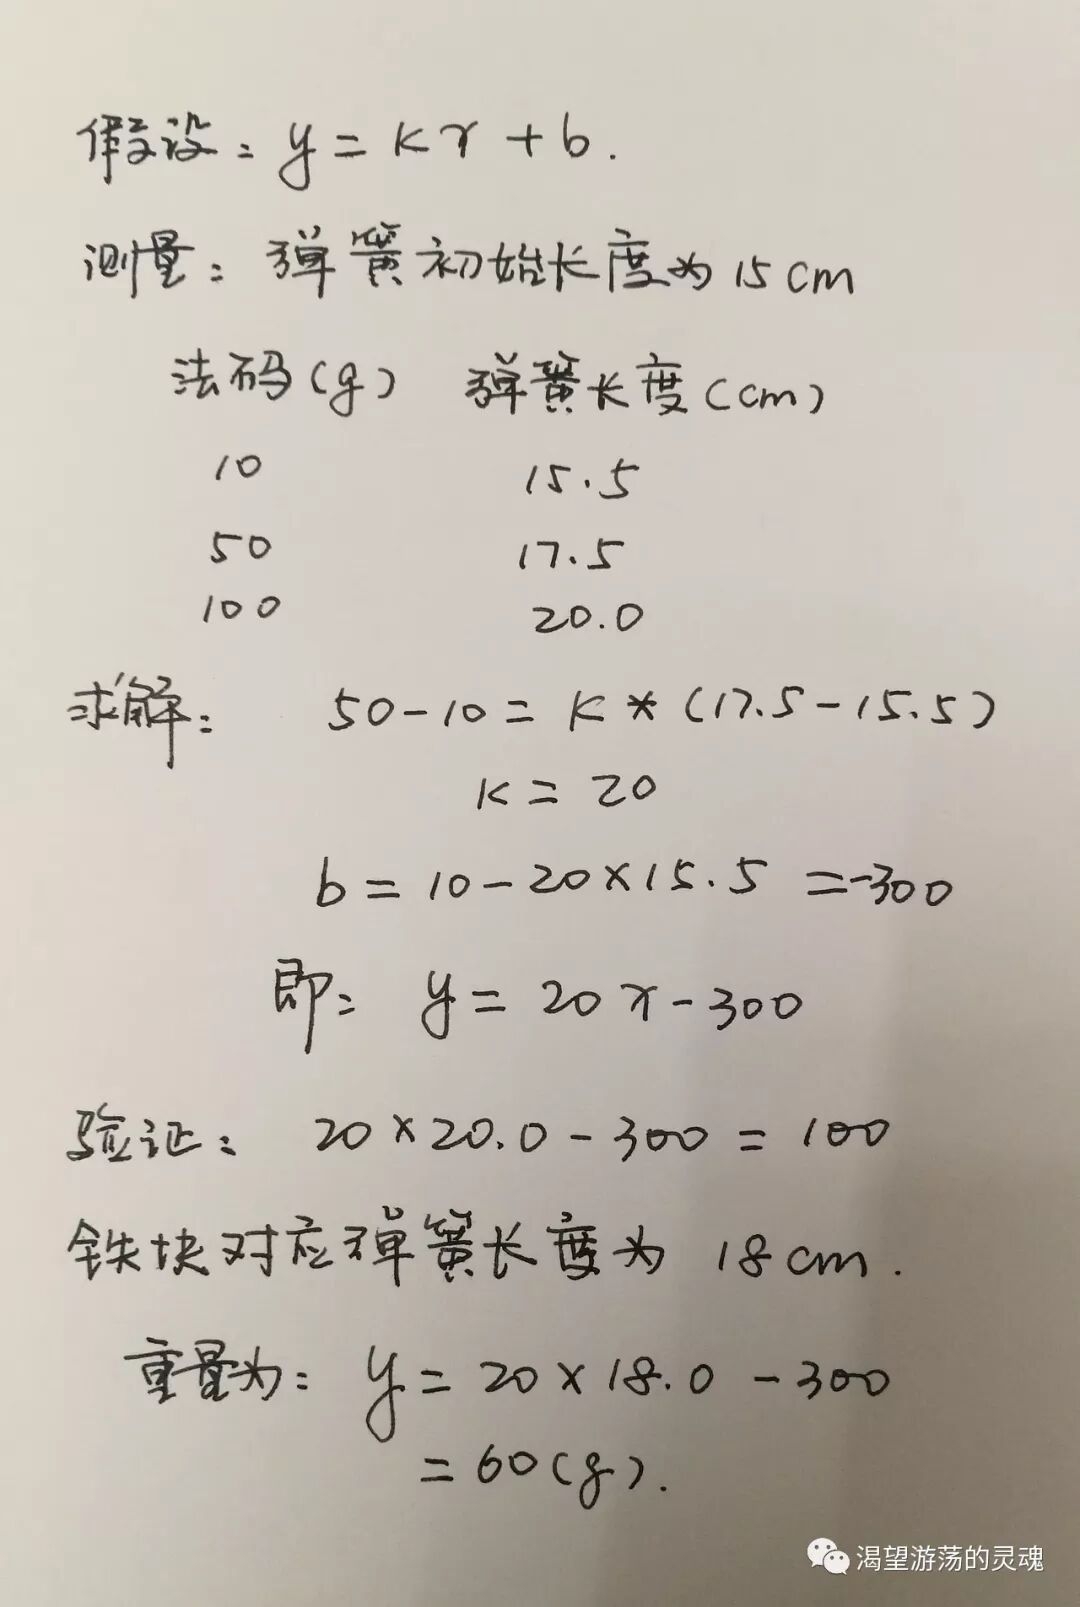 假设：y = kx + b.
测量：弹簧初始长度为15cm
法码(g) 弹簧长度(cm)
10 15.5
50 17.5
100 20.0
求解：50-10 = k * (17.5-15.5)
k = 20
b = 10-20×15.5 =-300
即：y = 20x-300
验证：20×20.0-300 = 100
铁块对应弹簧长度为 18cm.
重量为：y = 20×18.0-300
= 60(g).
渴望游荡的灵魂